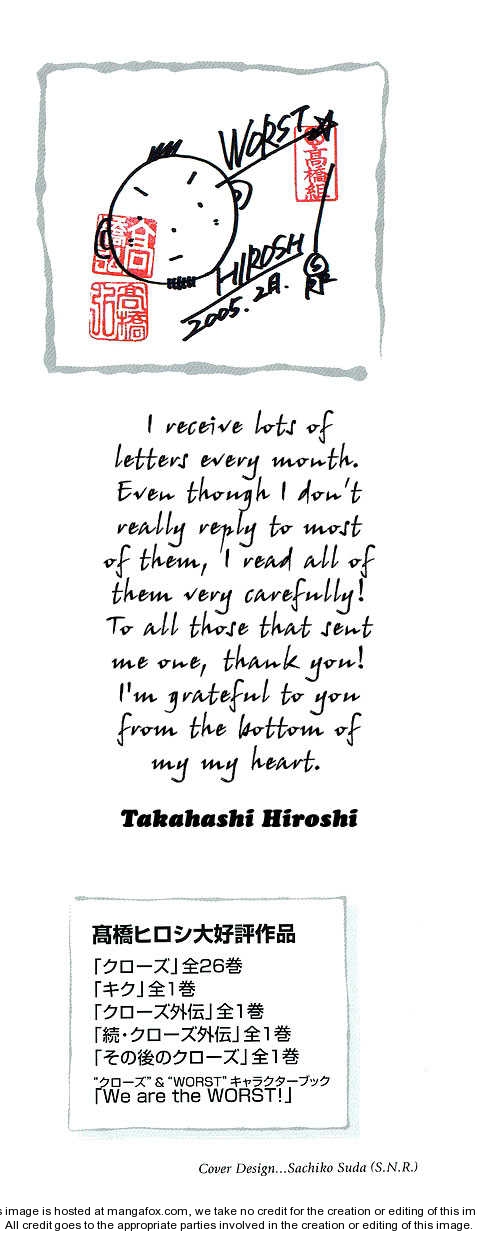 WORST
高橋組
HIROSHI
2005. 2月.
高橋
I receive lots of
letters every month.
Even though I don't
really reply to most
of them, I read all of
them very carefully!
To all those that sent
me one, thank you!
I'm grateful to you
from the bottom of
my my heart.
Takahashi Hiroshi
髙橋ヒロシ大好評作品
「クローズ」全26巻
「キク」全1巻
「クローズ外伝」全1巻
「続・クローズ外伝」全1巻
「その後のクローズ」全1巻
“クローズ” & “WORST” キャラクターブック
「We are the WORST!」
Cover Design...Sachiko Suda (S.N.R.)
s image is hosted at mangafox.com, we take no credit for the creation or editing of this im
All credit goes to the appropriate parties involved in the creation or editing of this image.